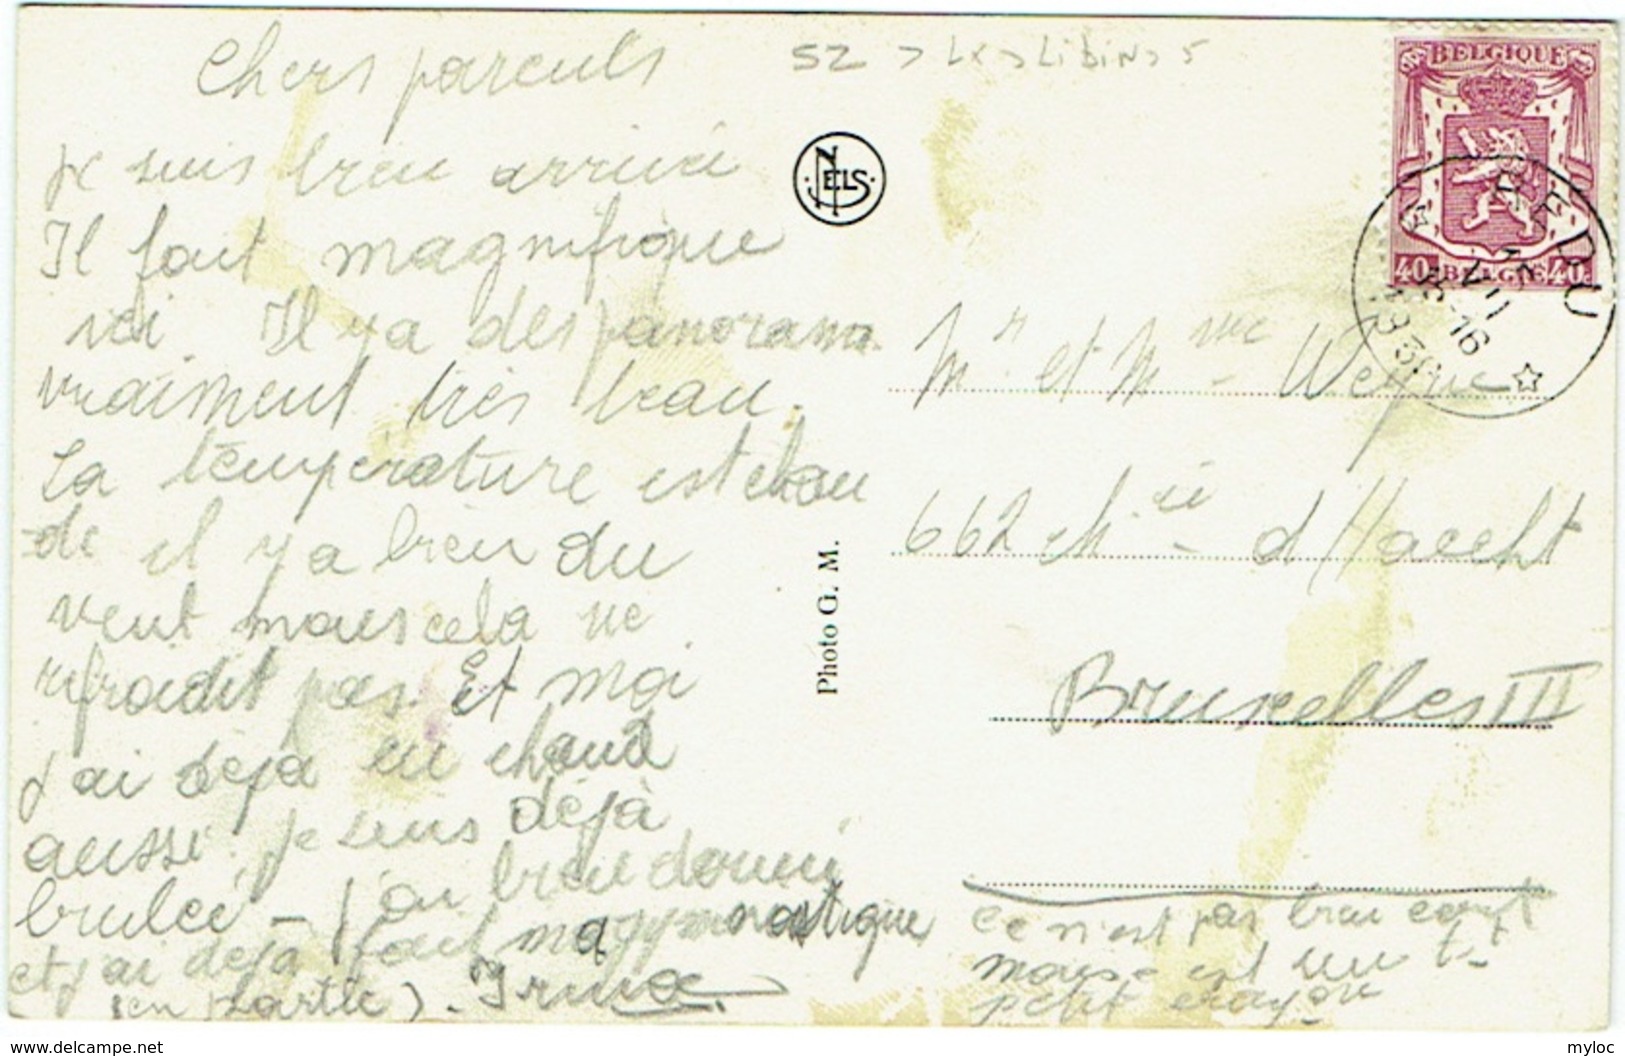 Chers parents
je suis bien arrivée
Il fait magnifique
ici. Il y a des panorama
vraiment très beau.
La température est chau
de il y a bien du
vent mais cela ne
refroidit pas. Et moi
j'ai déjà eu chaud
aussi. je suis déjà
brulée - j'ai bien dormi
et j'ai déjà fait ma gymnastique
(en partie). Irma
SZ > LX > LIBIN > 5
NELS
Photo G. M.
BELGIQUE
40c BELGIË 40c
REDU
Mr et Mme Weyne
662 ch. ée d'Haecht
Bruxelles III
Ce n'est pas bien écrit
mais c'est un t-
petit crayon
delcampe.net
myloc